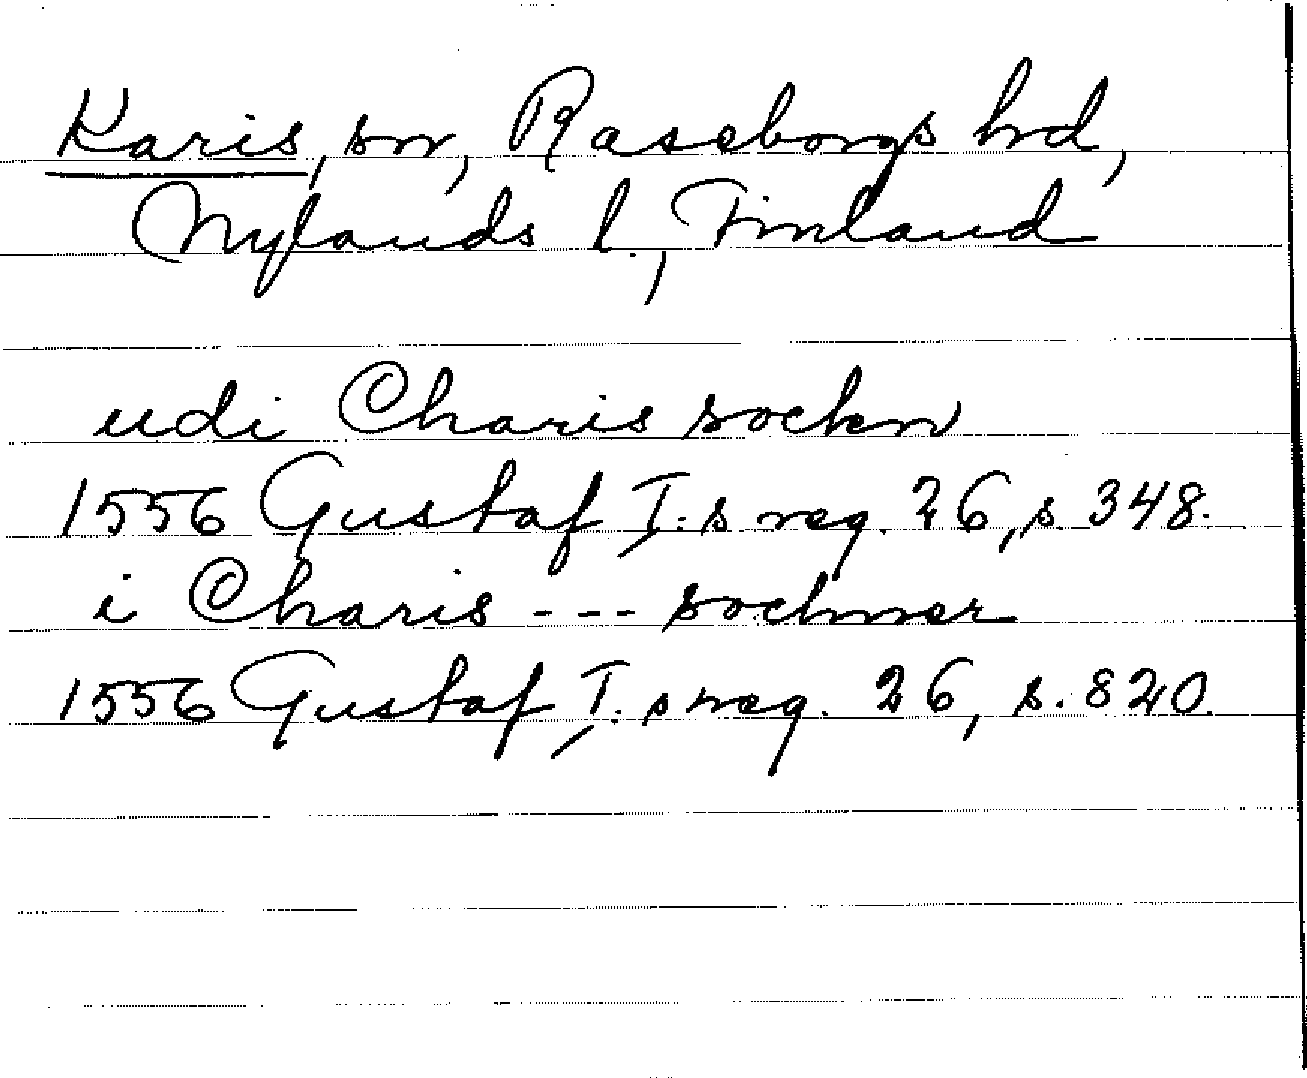 Karis, sn, Raseborgs hd,
Nylands l., Finland
udi Charis sockn
1556 Gustaf I:s reg. 26, s 348.
i Charis --- sochner
1556 Gustaf I:s reg. 26, s. 820.